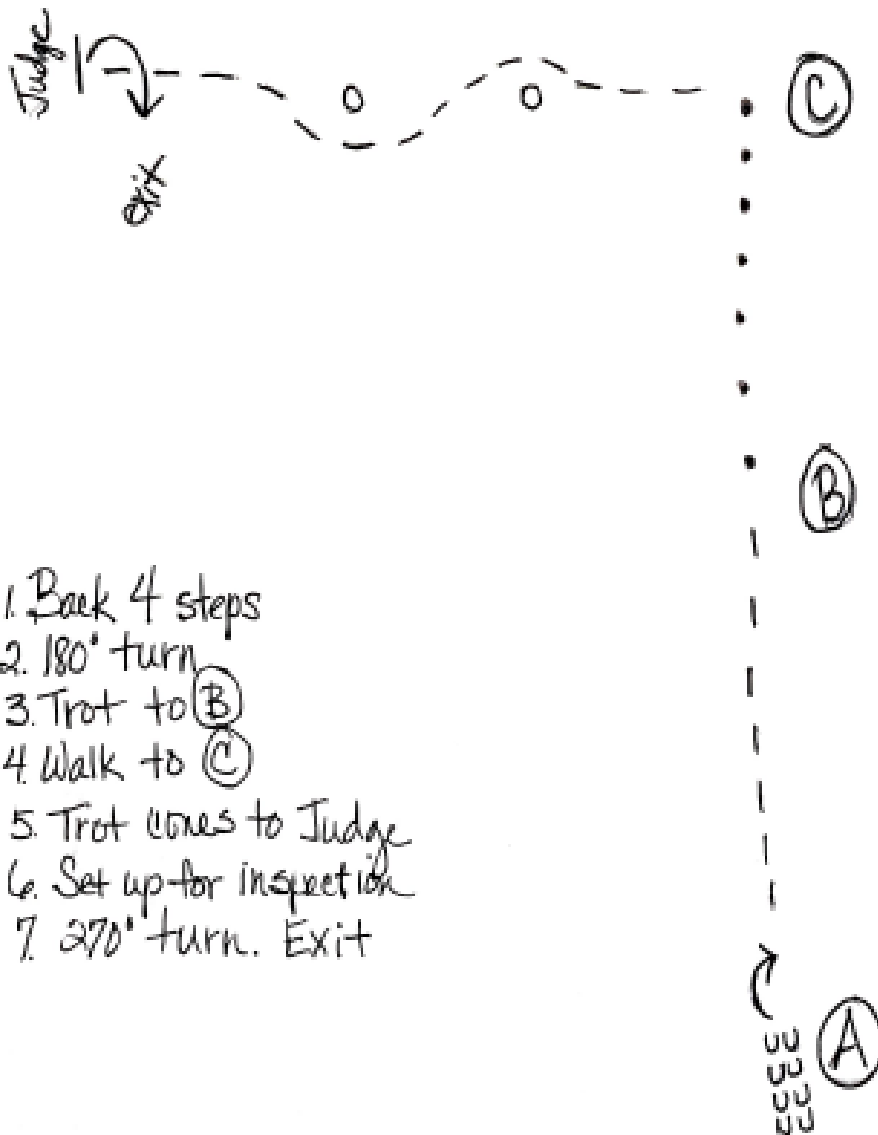 Judge
C
exit
B
1. Back 4 steps
2. 180° turn
3. Trot to B
4. Walk to C
5. Trot cones to Judge
6. Set up for inspection
7. 270° turn. Exit
A